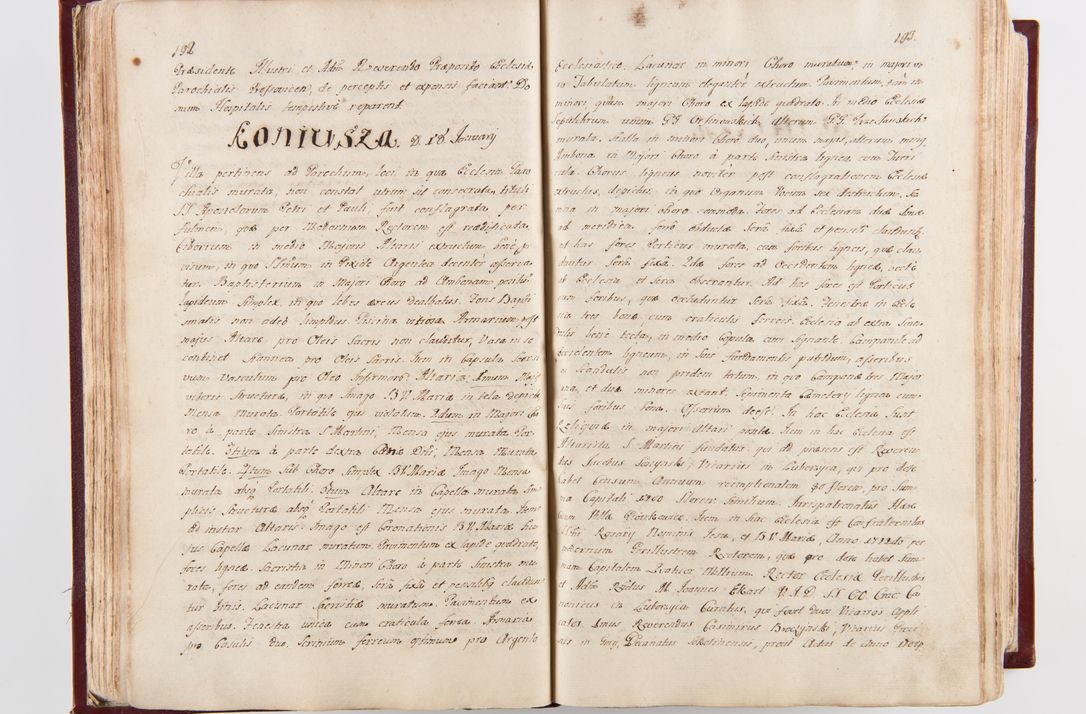 192
Præsidente Illustri et Adm Reverendo Præposito Ecclesiæ
Parochialis de perceptis et expensis faciant Do
mum Hospitalis tempestive reparent
KONIUSZA D. 18 January
Villa pertinens ad Parochum, loci, in qua Ecclesia Paro
chialis murata, non constat utrum sit consecrata, tituli
SS. Apostolorum Petri et Pauli, fuit conflagrata per
fulmen, quæ per Modernum Rectorem est reædificata
Ciborium in medio Majoris Altaris extructum bene p
visum, in quo SSmum in Pixide Argentea decenter asserva
tur. Baptisterium in Majori Choro ad Ambonam positū
lapideum simplex, in quo lebes æreus dealbatus. Fons Bapti
smatis non adeo limpidus. Piscina vitrosa Armarium post
majus Altare pro Oleis Sacris non clauditur, Vasa in se
continet stannea pro Oleis Sacris. Item in Capsula
vum Vasculum pro Oleo Infirmorū. Altaria. Imum
Structuræ, in quo Imago B.V. Mariæ in tela depicta
Mensa murata Portatile ejus violatum. 2dum in Majori Cho
ro à parte Sinistra S. Martini, Mensa ejus murata Por
tatile. 3tium à parte dextra Cænæ Dni, Mensa Murata
Portatile. 4tum Sub Choro Simplex B.V. Mariæ Imago Mensa
murata absq Portatili. 5tum Altare in Capella murata Sim
plicis Structuræ absq Portatili Mensa ejus murata. Item
ad instar Altaris Imago est Coronationis B.V. Mariæ hu
jus Capellæ Lacunar muratum, Pavimentum ex lapide quadrato,
fores ligneæ. Sacristia in Minori Choro à parte Sinistra mu
rata, fores ad eandem ferreæ Serâ fixâ et pensili claudun
tur binis. Lacunar Sacristiæ muratum. Pavimentum ex
asseribus. Fenestra unica cum craticula ferrea. Armaria
pro Casulis duo. Scrinium ferreum optimum pro Argento
193
Ecclesiastico. Lacunar in minori Choro muratum, in majori ve
ro Tabulatum ligneum eleganter extructum Pavimentum, tam in
minori, quam majori Choro ex lapide quadrato. In medio Ecclesiæ
Sepulchrum unum alterum
murata. Stalla in minori Choro duo, unum majus, alterum minus
Ambona in Majori Choro à parte Sinistra lignea, cum
cula. Chorus ligneus noviter post conflagrationem Ecclesiæ
extructus, depictus, in quo Organum Vocum sex
in majori Choro commoda. Fores ad Ecclesiam duæ
ad meridiem ferro obductæ Serâ fixâ et pensili claudunt
ad has fores Porticus murata, cum foribus ligneis, quæ clau
duntur Serâ fixâ. 2dæ fores ad Occidentem ligneæ, vecte
ab Ecclesia et Serâ obserantur. Ad has fores est Porticus
cum foribus, quæ occluduntur Serâ fixâ. Fenestræ in Eccle
sia tres bonæ cum craticulis ferreis. Ecclesia ab extra Scan
dulis bene tecta, in medio Copula cum Signante. Campanile ad
Occidentem ligneum, in suis fundamentis putridum, asseribus
et Scandulis non pridem tectum, in quo Campanæ tres Major
una, et duæ minores extant. Sepimenta Cæmetery lignea cum
suis foribus bona. Ossorium deest. In hac Ecclesia sunt
Reliquiæ in majori Altari positæ. Item in hac Ecclesia est
Altarista S. Martini fundatus qui ad præsens est Reveren
dus Jacobus Vicarius in Luborzyca, qui pro dote
habet Censum Annuum reemptionalem 90 floren, pro Sum
ma Capitali 1200 floren similium. Jurispatronatus Hære
dum Villæ Piotrkowice. Item in hac Ecclesia est Confraternitas
Rosary Nominis Jesu, et B.V. Mariæ, Anno per
modernum Perillustrem Rectorem, quæ pro dote habet Sum
mam Capitalem Quatuor Millium. Rector Ecclesiæ Perillustris
et Adm Rndus M. Joannes Ekart V.J.D. SS. CC. Crac: Ca
nonicus in Luborzyca Curatus, qui fovet duos Vicarios Appli
catos. Imus Reverendus Casimirus Vicarius
Decanatus Actus de Anno